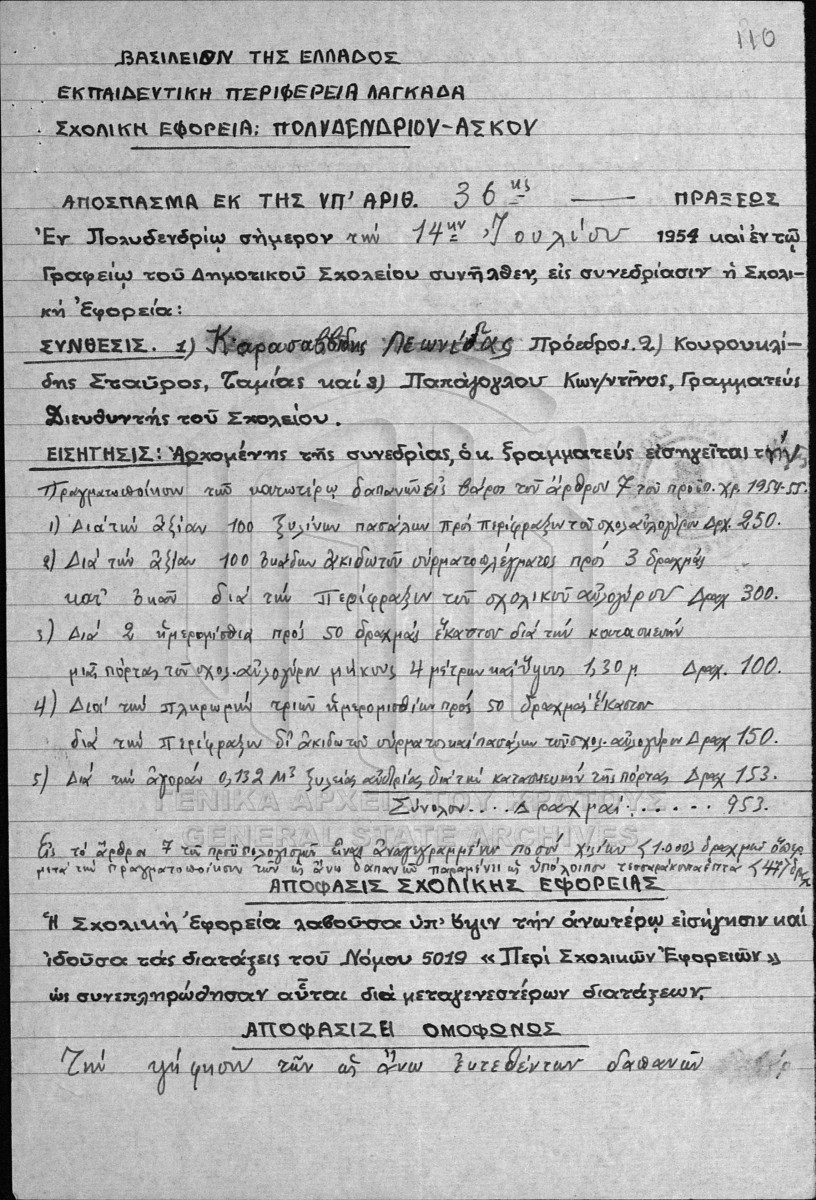 110
ΒΑΣΙΛΕΙΟΝ ΤΗΣ ΕΛΛΑΔΟΣ
ΕΚΠΑΙΔΕΥΤΙΚΗ ΠΕΡΙΦΕΡΕΙΑ ΛΑΓΚΑΔΑ
ΣΧΟΛΙΚΗ ΕΦΟΡΕΙΑ: ΠΟΛΥΔΕΝΔΡΙΟΥ-ΑΣΚΟΥ
ΑΠΟΣΠΑΣΜΑ ΕΚ ΤΗΣ ΥΠ' ΑΡΙΘ. 36ης — ΠΡΑΞΕΩΣ
Ἐν Πολυδενδρίῳ σήμερον τήν 14ην Ἰουλίου 1954 καί ἐν τῷ
Γραφείῳ τοῦ Δημοτικοῦ Σχολείου συνῆλθεν, εἰς συνεδρίασιν ἡ Σχολι-
κή Ἐφορεία:
ΣΥΝΘΕΣΙΣ. 1) Καρασαββίδης Λεωνίδας Πρόεδρος. 2) Κουρουκλί-
δης Σταῦρος, Ταμίας καί 3) Παπάζογλου Κων/ντῖνος, Γραμματεύς
Διευθυντής τοῦ Σχολείου.
ΕΙΣΗΓΗΣΙΣ: Ἀρχομένης τῆς συνεδρίας, ὁ κ. Γραμματεύς εἰσηγεῖται τήν
Πραγματοποίησιν τῶν κατωτέρω δαπανῶν εἰς βάρος τοῦ ἄρθρου 7 τοῦ προϋπ. χρ. 1954-55.
1) Διά τήν ἀξίαν 100 ξυλίνων πασάλων πρός περίφραξιν τοῦ σχολ. αὐλογύρου Δρχ. 250.
2) Διά τήν ἀξίαν 100 ὀκάδων ἀκιδωτοῦ σύρματοπλέγματος πρός 3 δραχμάς
κατ' ὀκᾶν διά τήν περίφραξιν τοῦ σχολικοῦ αὐλογύρου Δραχ 300.
3) Διά 2 ἡμερομίσθια πρός 50 δραχμάς ἕκαστον διά τήν κατασκευήν
μιᾶς πόρτας τοῦ σχολ. αὐλογύρου μήκους 4 μέτρων καί ὕψους 1,30 μ. Δραχ. 100.
4) Διά τήν πληρωμήν τριῶν ἡμερομισθίων πρός 50 δραχμάς ἕκαστον
διά τήν περίφραξιν δι' ἀκιδωτοῦ σύρματος καί πασάλων τοῦ σχολ. αὐλογύρου Δραχ 150.
5) Διά τήν ἀγοράν 0,132 Μ³ ξυλείας διά τήν κατασκευήν τῆς πόρτας Δραχ 153.
Σύνολον.... Δραχμαί...... 953.
Εἰς τό ἄρθρον 7 τοῦ προϋπολογισμοῦ εἶναι ἀναγεγραμμένον ποσόν χιλίων (1.000) δραχμῶν ὅπερ
μετά τήν πραγματοποίησιν τῶν ὡς ἄνω δαπανῶν παραμένει ὡς ὑπόλοιπον τεσσαράκοντα ἑπτά (47) δρχ.
ΑΠΟΦΑΣΙΣ ΣΧΟΛΙΚΗΣ ΕΦΟΡΕΙΑΣ
Ἡ Σχολική Ἐφορεία λαβοῦσα ὑπ' ὄψιν τήν ἀνωτέρω εἰσήγησιν καί
ἰδοῦσα τάς διατάξεις τοῦ Νόμου 5019 «Περί Σχολικῶν Ἐφορειῶν»
ὡς συνεπληρώθησαν αὗται διά μεταγενεστέρων διατάξεων.
ΑΠΟΦΑΣΙΖΕΙ ΟΜΟΦΩΝΩΣ
Τήν ψήφισιν τῶν ὡς ἄνω ἐκτεθέντων δαπανῶν
ΓΕΝΙΚΑ ΑΡΧΕΙΑ ΤΟΥ ΚΡΑΤΟΥΣ
GENERAL STATE ARCHIVES